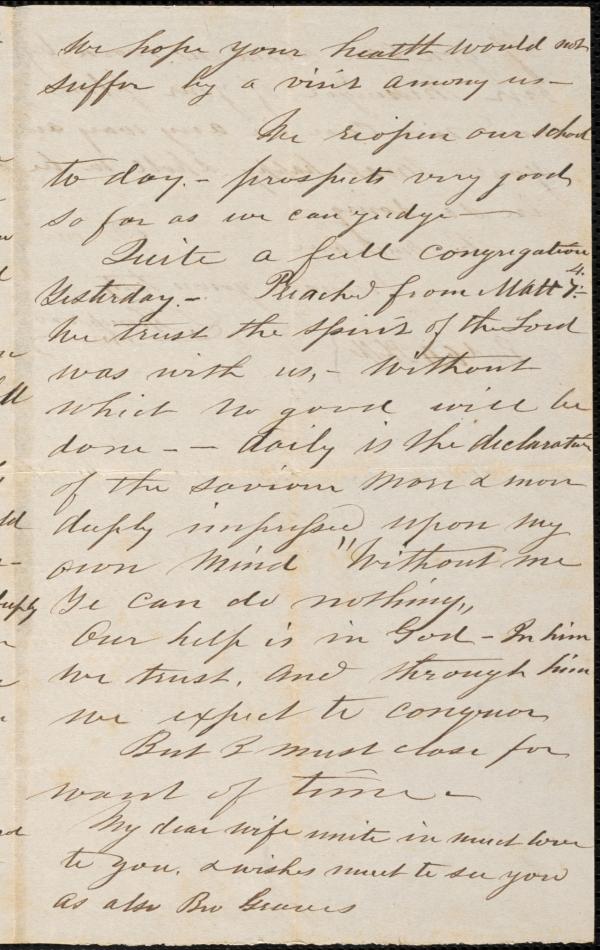 We hope your health would not
suffer by a visit among us -
We reopen our school
to day. - prospects very good
so far as we can judge -
Quite a full congregation
Yesterday. - Preached from Matt 4.
We trust the spirit of the Lord
was with us, - Without
which no good will be
done - - daily is the declaration
of the saviour more & more
deeply impressed upon my
own mind "Without me
Ye can do nothing,,
Our help is in God - In him
we trust, and through him
we expect to conquor
But I must close for
want of time -
My dear wife unite in much love
to you. & wishes much to see you
as also Bro Graves